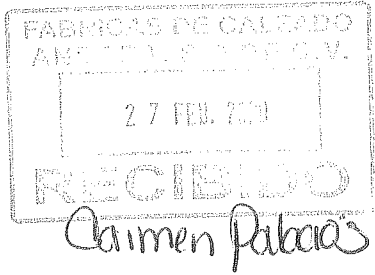 FABRICAS DE CALZADO
S.A. DE C.V.
27 FEB.
RECIBIDO
Carmen Palacios